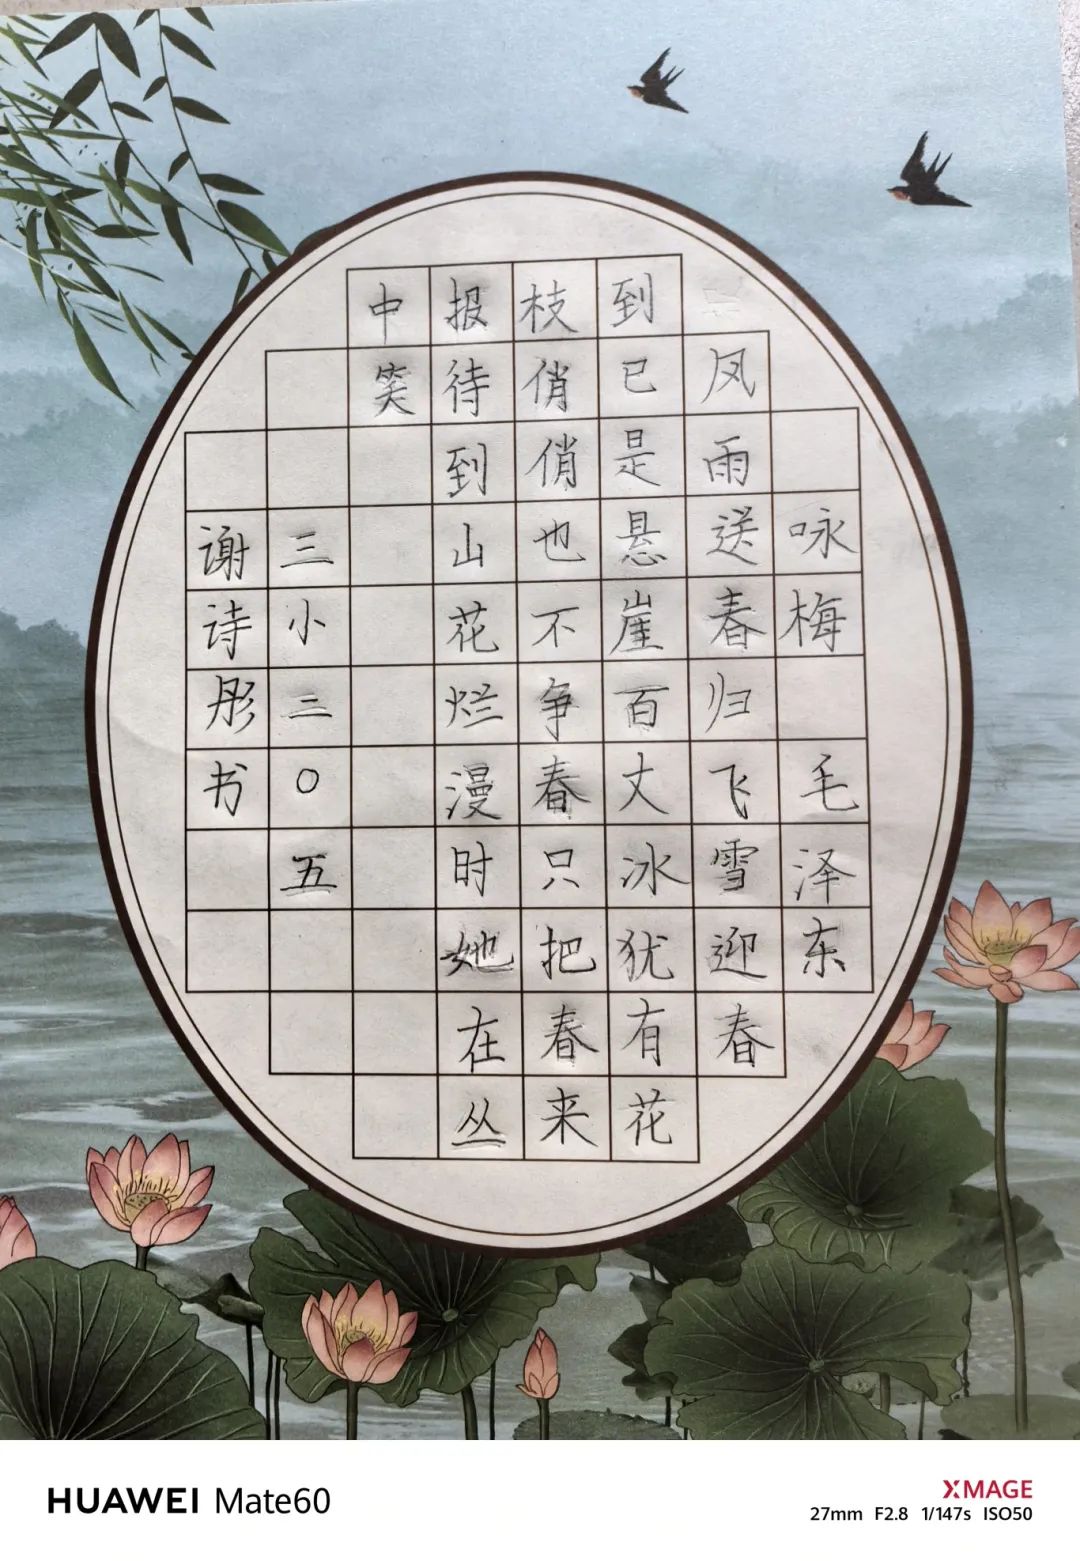 咏梅 毛泽东
凤雨送春归飞雪迎春
到已是悬崖百丈冰犹有花
枝俏俏也不争春只把春来
报待到山花烂漫时她在丛
中笑
三小二〇五
谢诗彤书
HUAWEI Mate60
XMAGE
27mm F2.8 1/147s ISO50